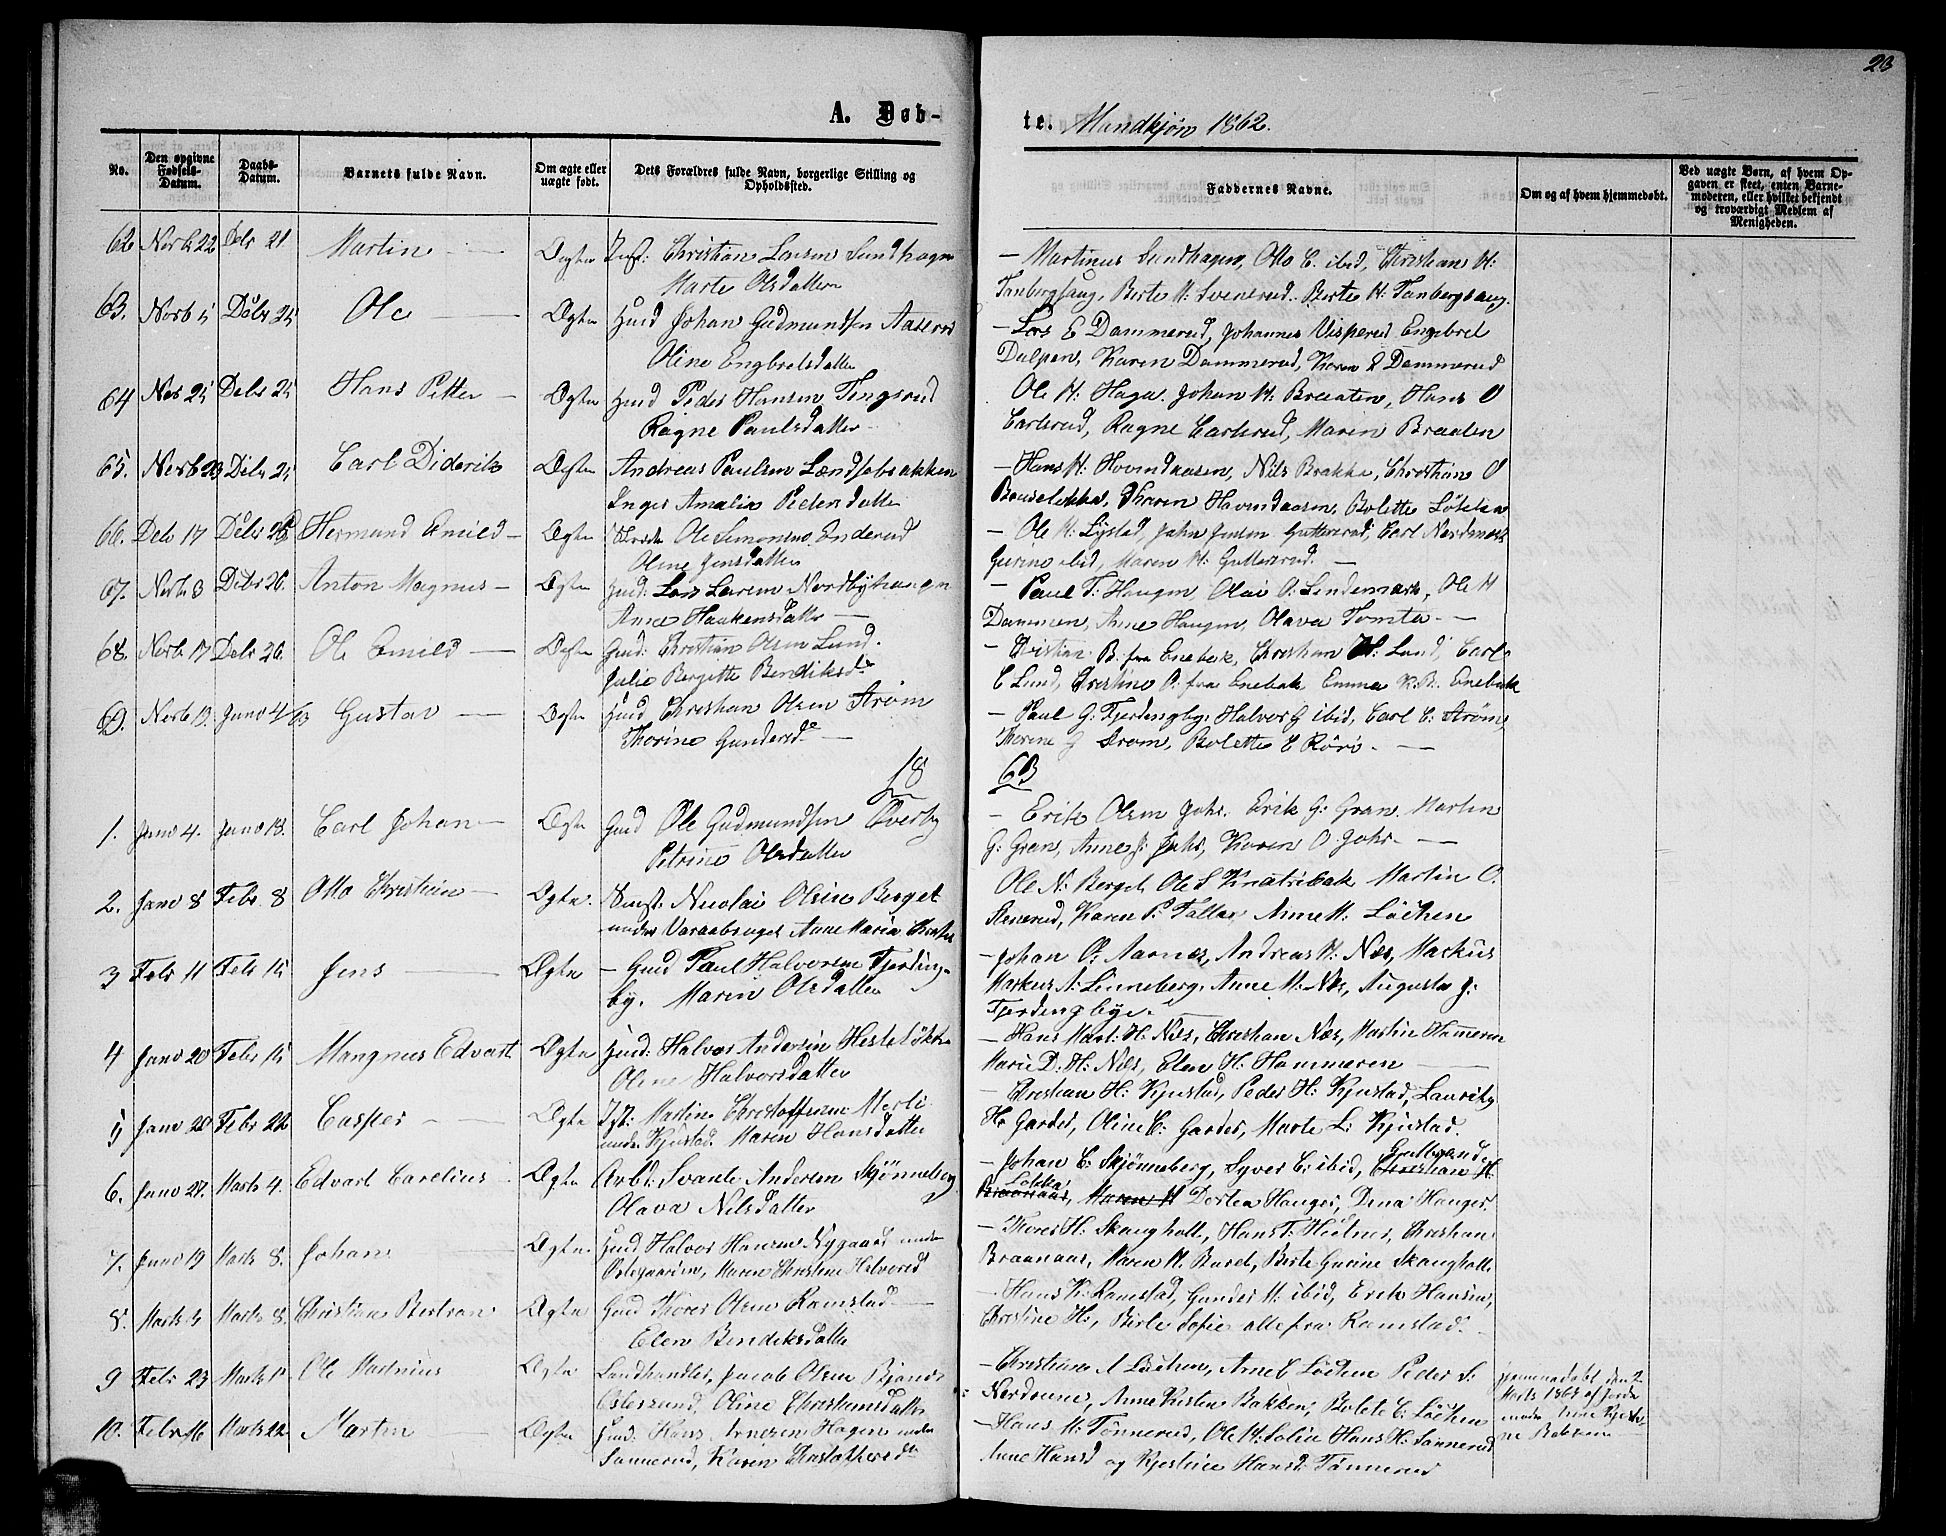 23
A. Døb-
te. Mandkjøn 1862.
No.
Den opgivne Fødsels-Datum.
Daabs-Datum.
Barnets fulde Navn.
Om ægte eller uægte født.
Dets Forældres fulde Navn, borgerlige Stilling og Opholdssted.
Faddernes Navne.
Om og af hvem hjemmedøbt.
Ved uægte Børn, af hvem Opgaven er skeet, enten Barnemoderen, eller hvilket bekjendt og troværdigt Medlem af Menigheden.
62 Novb 22 Debr 21 Martin Ægte Inst: Christian Larsen Sundhagen
Marte Olsdatter
- Martinus Sundhagen, Otto C. ibid, Christian H:
Tanbergsaug, Berte H: Svenerud. Berte H: Tanbergsaug.
63. Novb 5 Debr 25 Ole Ægte Husd Johan Gudmundsen Aaserud
Oline Engbretsdatter
- Lars E Dammerud, Johannes Visperud Engebret
Dalpen, Karen Dammerud, Karen E Dammerud
64 Nov 25 Debr 25 Hans Petter Ægte Husd Peder Hansen Tingsrud
Ragne Paulsdatter
Ole H: Haga. Johan H: Braaten, Hans O
Carlsrud, Ragne Carlsrud, Maren Braaten
65. Novb 23 Debr 25 Carl Diderik Ægte Andreas Paulsen
Inger Amalia Pedersdatter
- Hans H: Hovindaasen, Nils Brakka, Christian O
Karen Hovindaasen, Bolette Løkken
66. Deb 17 Debr 26 Hermand Emild Ægte Ole Simonsen Enderud
Oline Jensdatter
- Ole H: Lystad, John Jensen Gutterrud, Carl Nordmark
Gurine ibid, Maren H: Gutterrud.
67. Novb 3 Debr 26. Anton Magnus Ægte Husd: Lars Larsen Nordbyhaugen
Anne Haakensdatter
- Paul T: Haugen, Olai O: Lindemark, Ole H
Dammen, Anne Haugen, Olava Tomta.
68. Novb 17 Debr 26. Ole Emild Ægte Gud: Christian Olsen Lund.
Julie Birgitte Bendiksd
- Christian B. fra Enebak, Christian H: Lund, Carl
C Lund, Cristine O. fra Enebak Emma K.B. Enebak
69. Novb 12. Janu 4/63 Gustav Ægte Husd Christian Olsen Strøm
Thorine Gundersd
- Paul G. Fjerdingby, Halvor G ibid, Carl C: Strøm,
Thorine G Strøm, Bolette E Røri.
18
63
1. Janv 4. Janv 18. Carl Johan Ægte Gud Ole Gudmundsen Øverby
Petrine Olsdatter
- Erik Olsen Jahr. Erik G: Gran. Martin
G: Gran, Anne J: Jahr, Karen O Jahr.
2. Janv 8 Febr 8 Otto Christian Ægte Nicolai Olsen Berget
under Varaabruget Anne Maria
Ole N: Berget Ole S Martin O.
Stenerud, Karen P: Anne M: Løchen
3 Febr 11 Febr 15 Jens Ægte - Gud Paul Halvorsen Fjerding-
by. Maren Olsdatter
- Johan O: Aarnæs, Andreas H: Næs, Markus
Markus A: Linneberg, Anne M: Næs, Augusta J:
Fjerdingbye.
4 Janv 20 Febr 15 Mangnus Edvart Ægte Husd: Halvor Andersen Hesteløkke
Oline Halvorsdatter
- Hans Mart: H. Næs, Christian Næs, Martin Hammeren
Marie D: H: Næs, Elen H: Hammeren
5 Janv 28 Febr 22 Casper Ægte Inst: Martin Christoffersen
under Kjustad Maren Hansdatter
- Christian H: Kjustad, Peder H: Kjustad, Lauritz
H. Garder, Oline C: Garder, Marte L: Kjustad.
6. Janv 27. Marts 4. Edvart Carelius Ægte Arbd: Svante Andersen Skjønneberg
Olava Nilsdatter
- Johan C: Skjønneberg, Syver C: ibid, Christian H Gulbrand
Braanaas, Løkka, Maren H Dorlea Hanger, Dina Hanger.
7. Janv 19 Marts 8. Johan Ægte Husd Halvor Hansen Nygaard under
Maren Christine Halvorsd
- Thorer H: Skanghølt, Hans T: Christian
Braanaas, Maren H. Berte Gurine Skanghølt
8. Marts 8. Christian Bertran Ægte Gud Thorer Olsen Ramstad
Elen Bendiksdatter
- Hans K: Ramstad, Gunder M: ibid, Erik Hansen,
Christine H:, Berte Sofie alle fra Ramstad.
9 Febr 23 Ole Martinius Ægte Landhandler, Jacob Olsen Bjanes
Østersund, Oline Christiansdatter
- Christian A Løchen, Arne C Løchen Peder S.
Nordaunes, Anne Kirsten Bakken, Bolete C: Løchen
hjemmedøbt den 2
Marts 1863 af Jorde
moder
10. Febr 16 Marts 22 Martin Ægte Husd: Hans Arnesen Hagen under
Sannerud, Karen Christophersd
- Hans M: Tønnerud, Ole H: Hans H: Sannerud
Anne Hansd og Kjerstine Hansd: Tønnerud